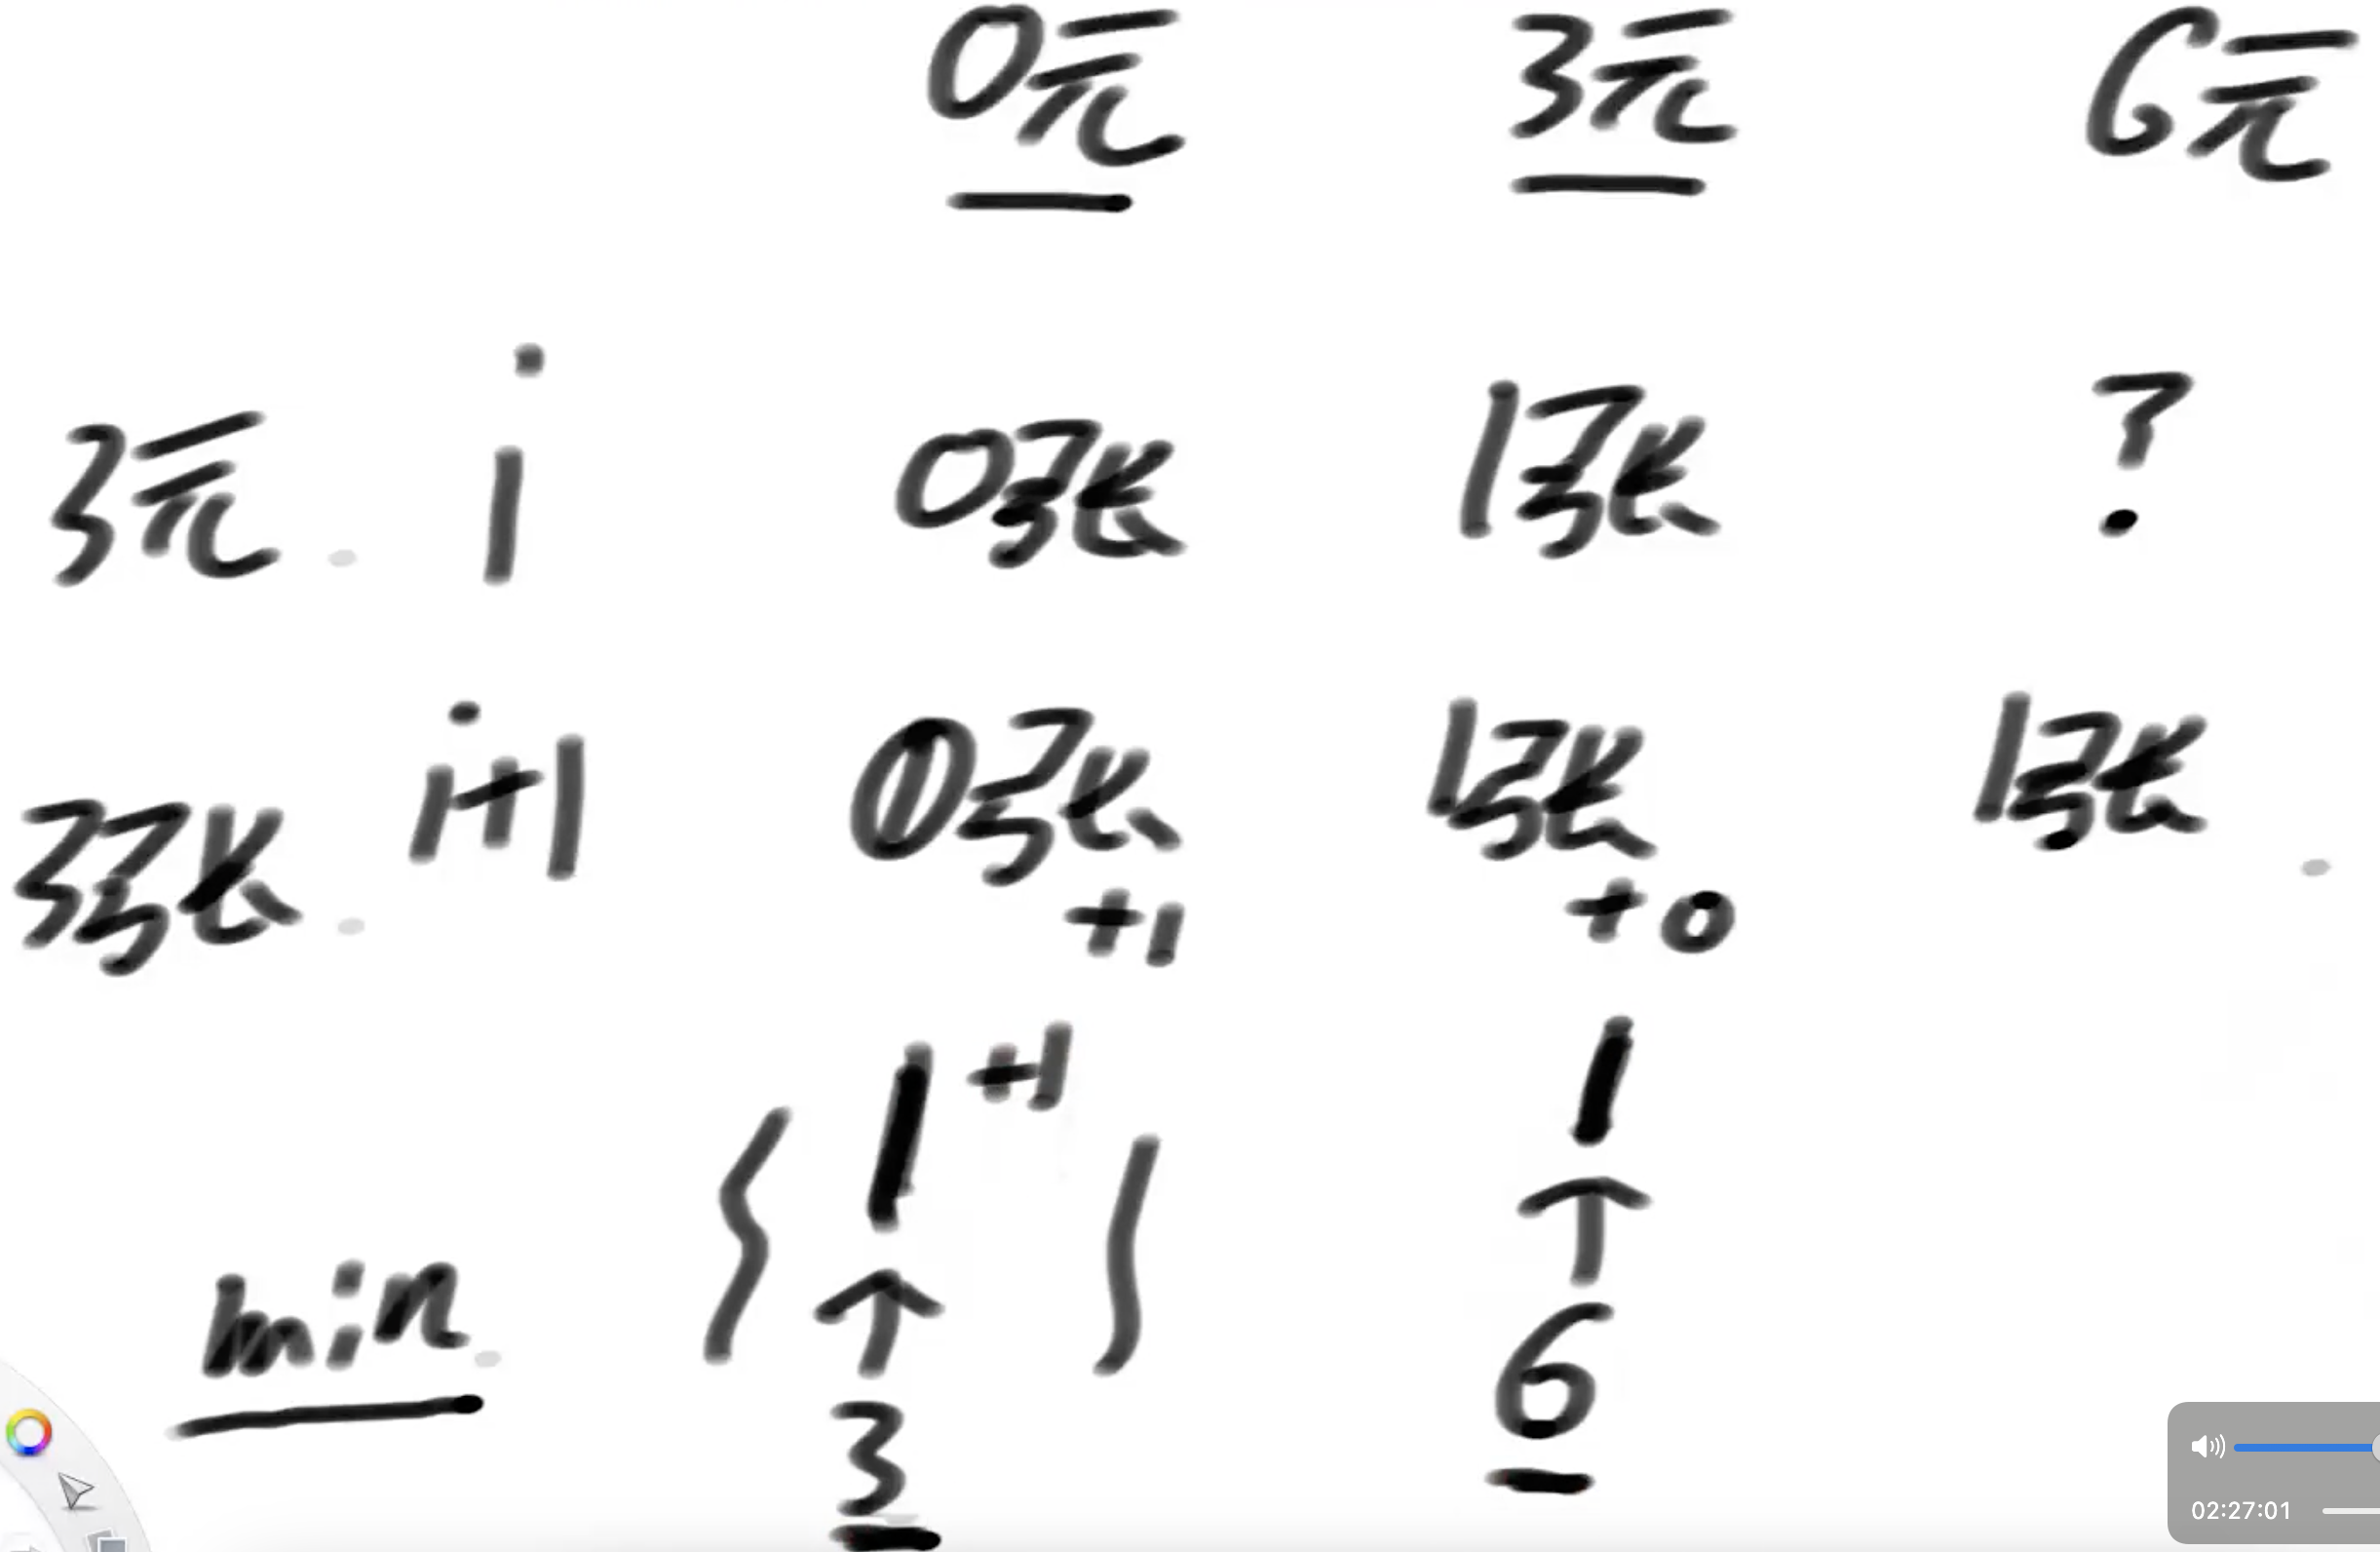 0元 3元 6元
3元 i 0张 1张 ?
3张 i+1 0张 1张 1张
+1 +0
1 +1 1
{ ↑ } ↑
min 3 6
02:27:01